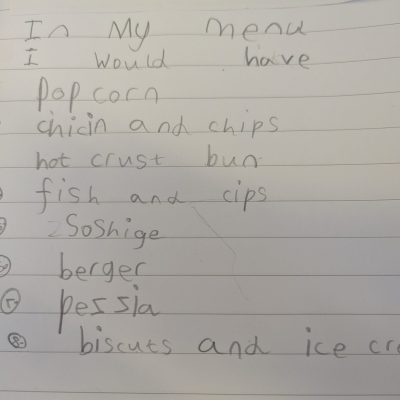 In My menu
I would have
popcorn
chicin and chips
hot crust bun
fish and cips
Soshige
berger
pessia
8 biscuts and ice